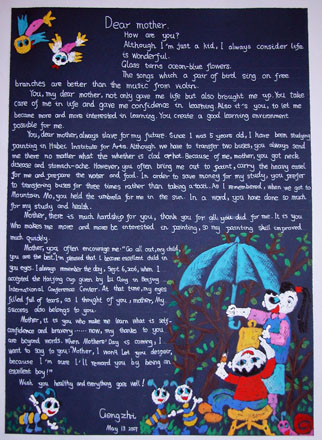 Dear mother,
How are you?
Although I'm just a kid, I always consider life
is wonderful.
Glass turns ocean-blue flowers.
The songs which a pair of bird sing on free
branches are better than the music from
You, my dear mother, not only gave me life but also brought me up. You take
care of me in life and gave me confidence in learning. Also it's you, to let me
become more and more interested in learning. You create a good learning environment
possible for me.
You, dear mother, always slave for my future. Since I was 5 years old, I have been studying
painting in Hubei Institute for Arts. Although we have to transfer two buses, you always send
me there no matter what the whether is cold or hot. Because of me, mother, you got neck
disease and stomach-ache. However, you often bring me out to paint, carry the heavy easel
for me and prepare the water and food. In order to save money for my study, you prefer
to transfering buses for three times rather than taking a taxi. As I remembered, when we got to
Mountain Mo, you held the umbrella for me in the sun. In a word, you have done so much
for my study and health.
Mother, there is much hardship for you, thank you for all you did for me. It is you
who makes me more and more be interested in painting, so my painting skill improved
much quickly.
Mother, you often encourage me: "Go all out, my child,
you are the best. I'm pleased that I become excellent child in
you eyes. I always remember the day, Sept 6, 2006, when I
accepted the Haiqing cup given by Li Qing in Beijing
International Conference Center. At that time, my eyes
filled full of tears, as I thought of you, mother. My
success also belongs to you.
Mother, it is you who make me learn what is self-
confidence and bravery...... now, my thanks to you
are beyond words. When Mothers' Day is coming, I
want to say to you: "Mother, I won't let you despair,
because I'm sure I'll reward you by being an
excellent boy!"
Wish you healthy and everything goes well!
Gengzhi
May 13 2007